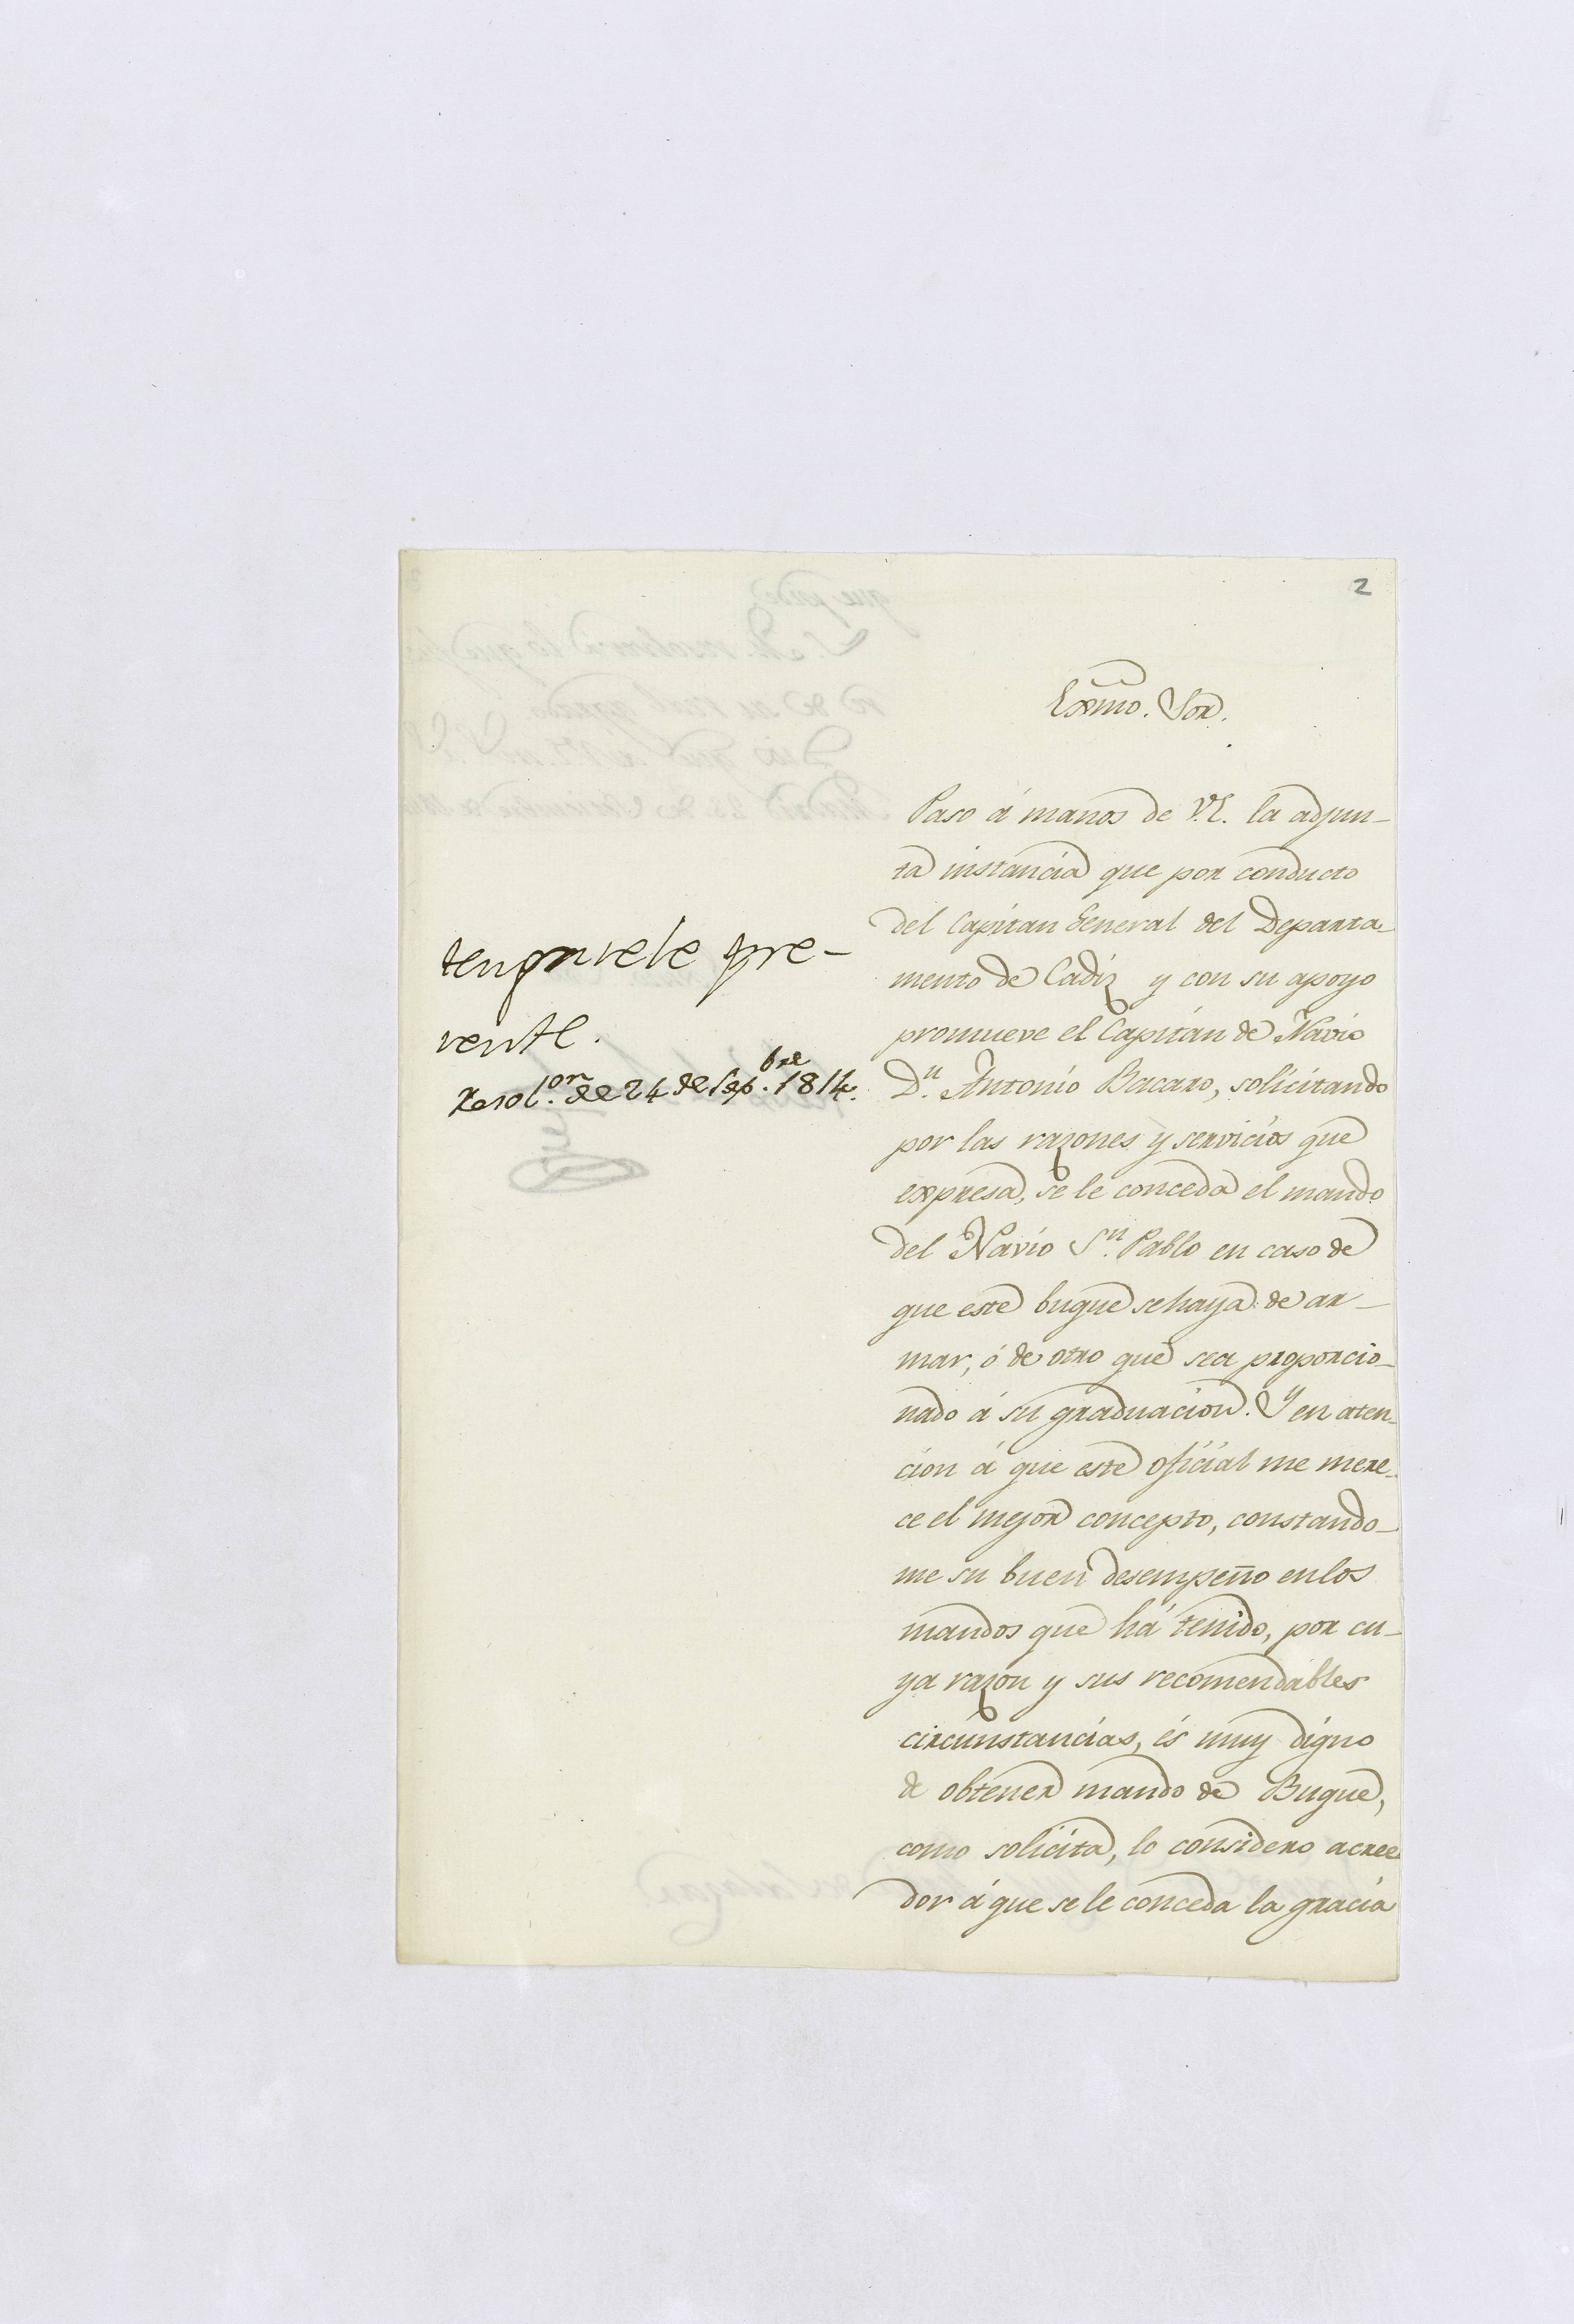 2
Exmo. Sor.
Paso á manos de V.E. la adjun-
ta instancia que por conducto
del Capitan General del Departa-
mento de Cadiz y con su apoyo
promueve el Capitan de Navio
Dn. Antonio Bacaro, solicitando
por las razones y servicios que
expresa, se le conceda el mando
del Navio Sn. Pablo en caso de
que este buque se haya de ar-
mar, ó de otro que sea proporcio-
nado á su graduacion. Y en aten-
cion á que este oficial me mere-
ce el mejor concepto, constando-
me su buen desempeño en los
mandos que há tenido, por cu-
ya razon y sus recomendables
circunstancias, és muy digno
de obtener mando de Buque,
como solicita, lo considero acree
dor á que se le conceda la gracia
tengasele pre-
sente.
Resolon. de 24 de Sepbre. 1814.